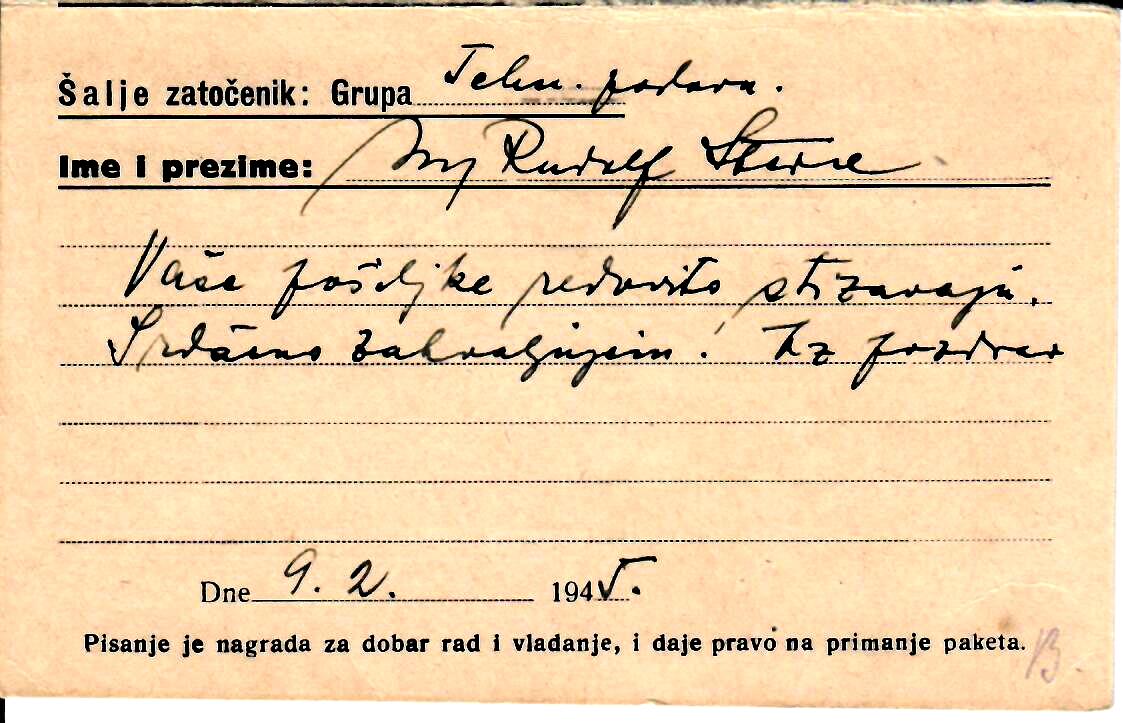 Šalje zatočenik: Grupa Tehn.
Ime i prezime: Ing Rudolf
Vaše pošiljke redovito stizavaju.
Srdačno zahvaljujem! Uz pozdrav
Dne 9. 2. 1945.
Pisanje je nagrada za dobar rad i vladanje, i daje pravo na primanje paketa.